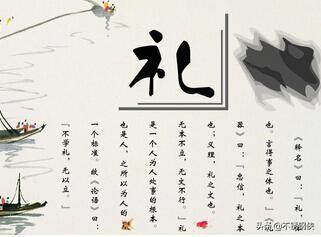 礼
《释名》曰：『礼，
也。言得事之体也。』《礼
器》曰：『忠信，礼之本
也；义理，礼之文也。
无本不立，无文不行。』礼
是一个人为人处事的根本。
也是人，之所以为人的
一个标准。故《论语》曰：
『不学礼，无以立。』
头条